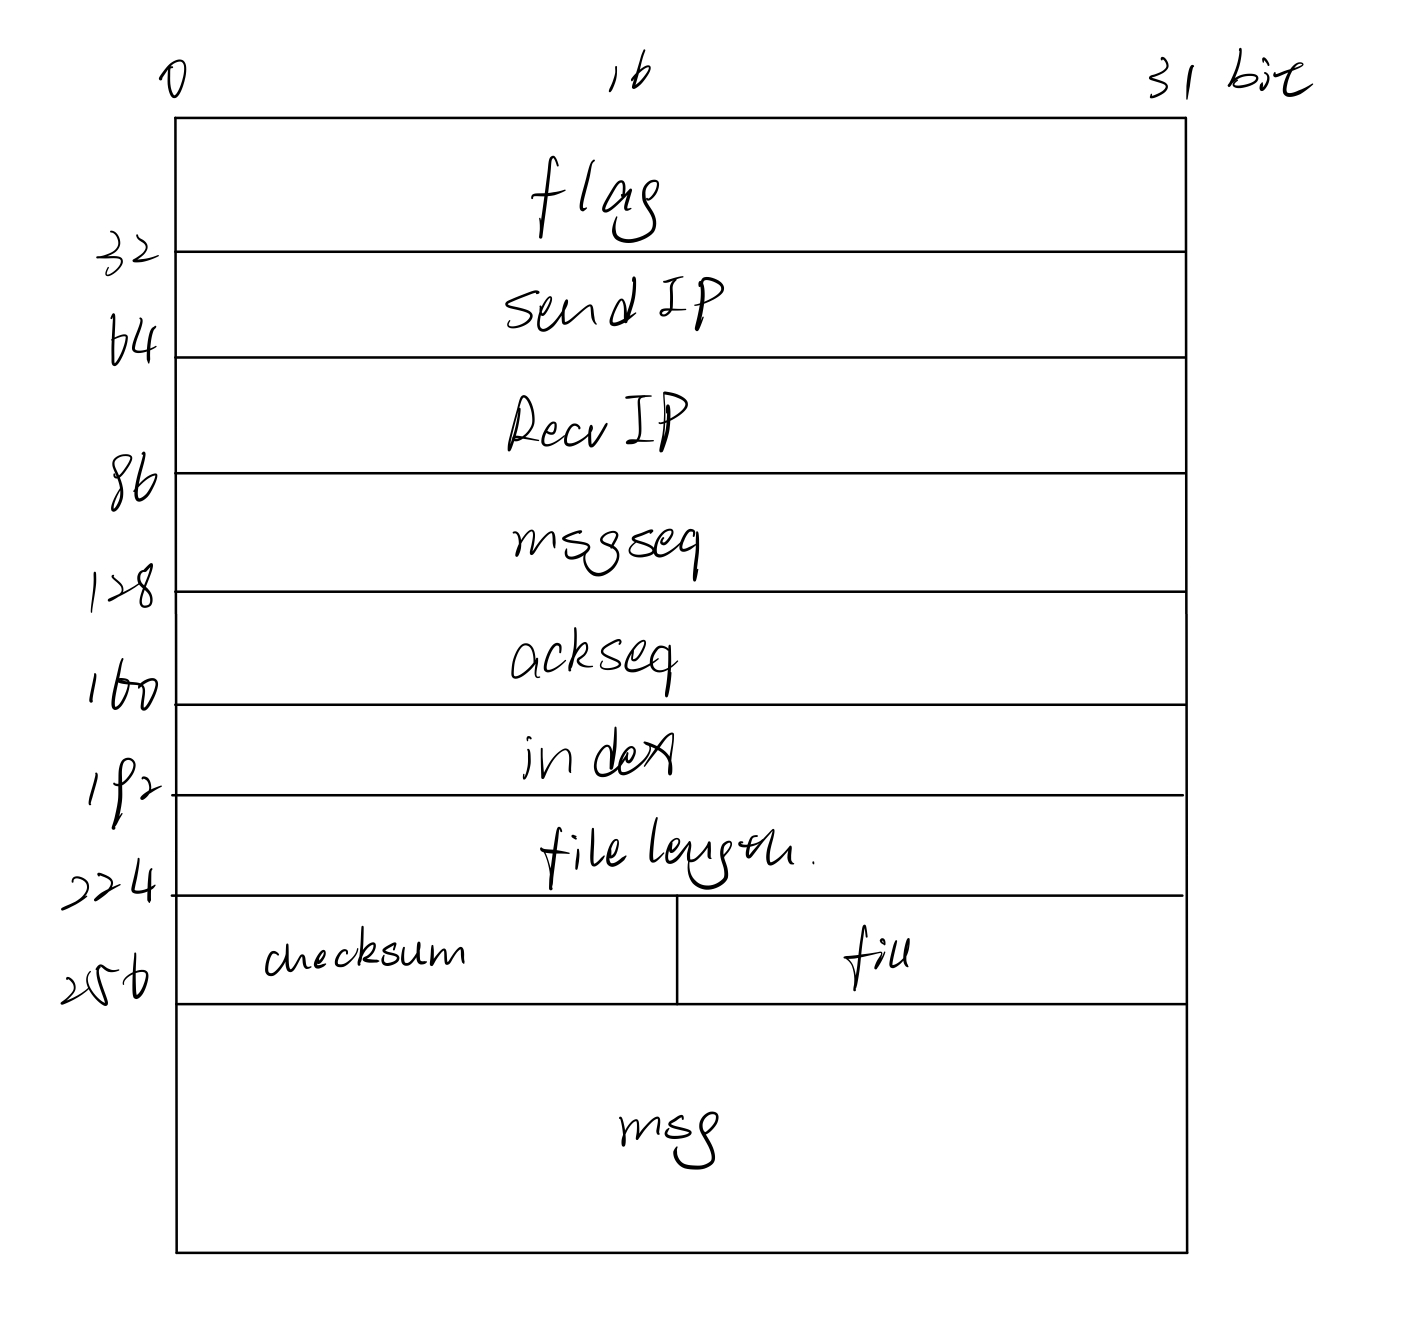 0 16 31 bit
flag
32
send IP
64
Recv IP
86
msgseq
128
ackseq
160
index
192
file length.
224
checksum fill
256
msg